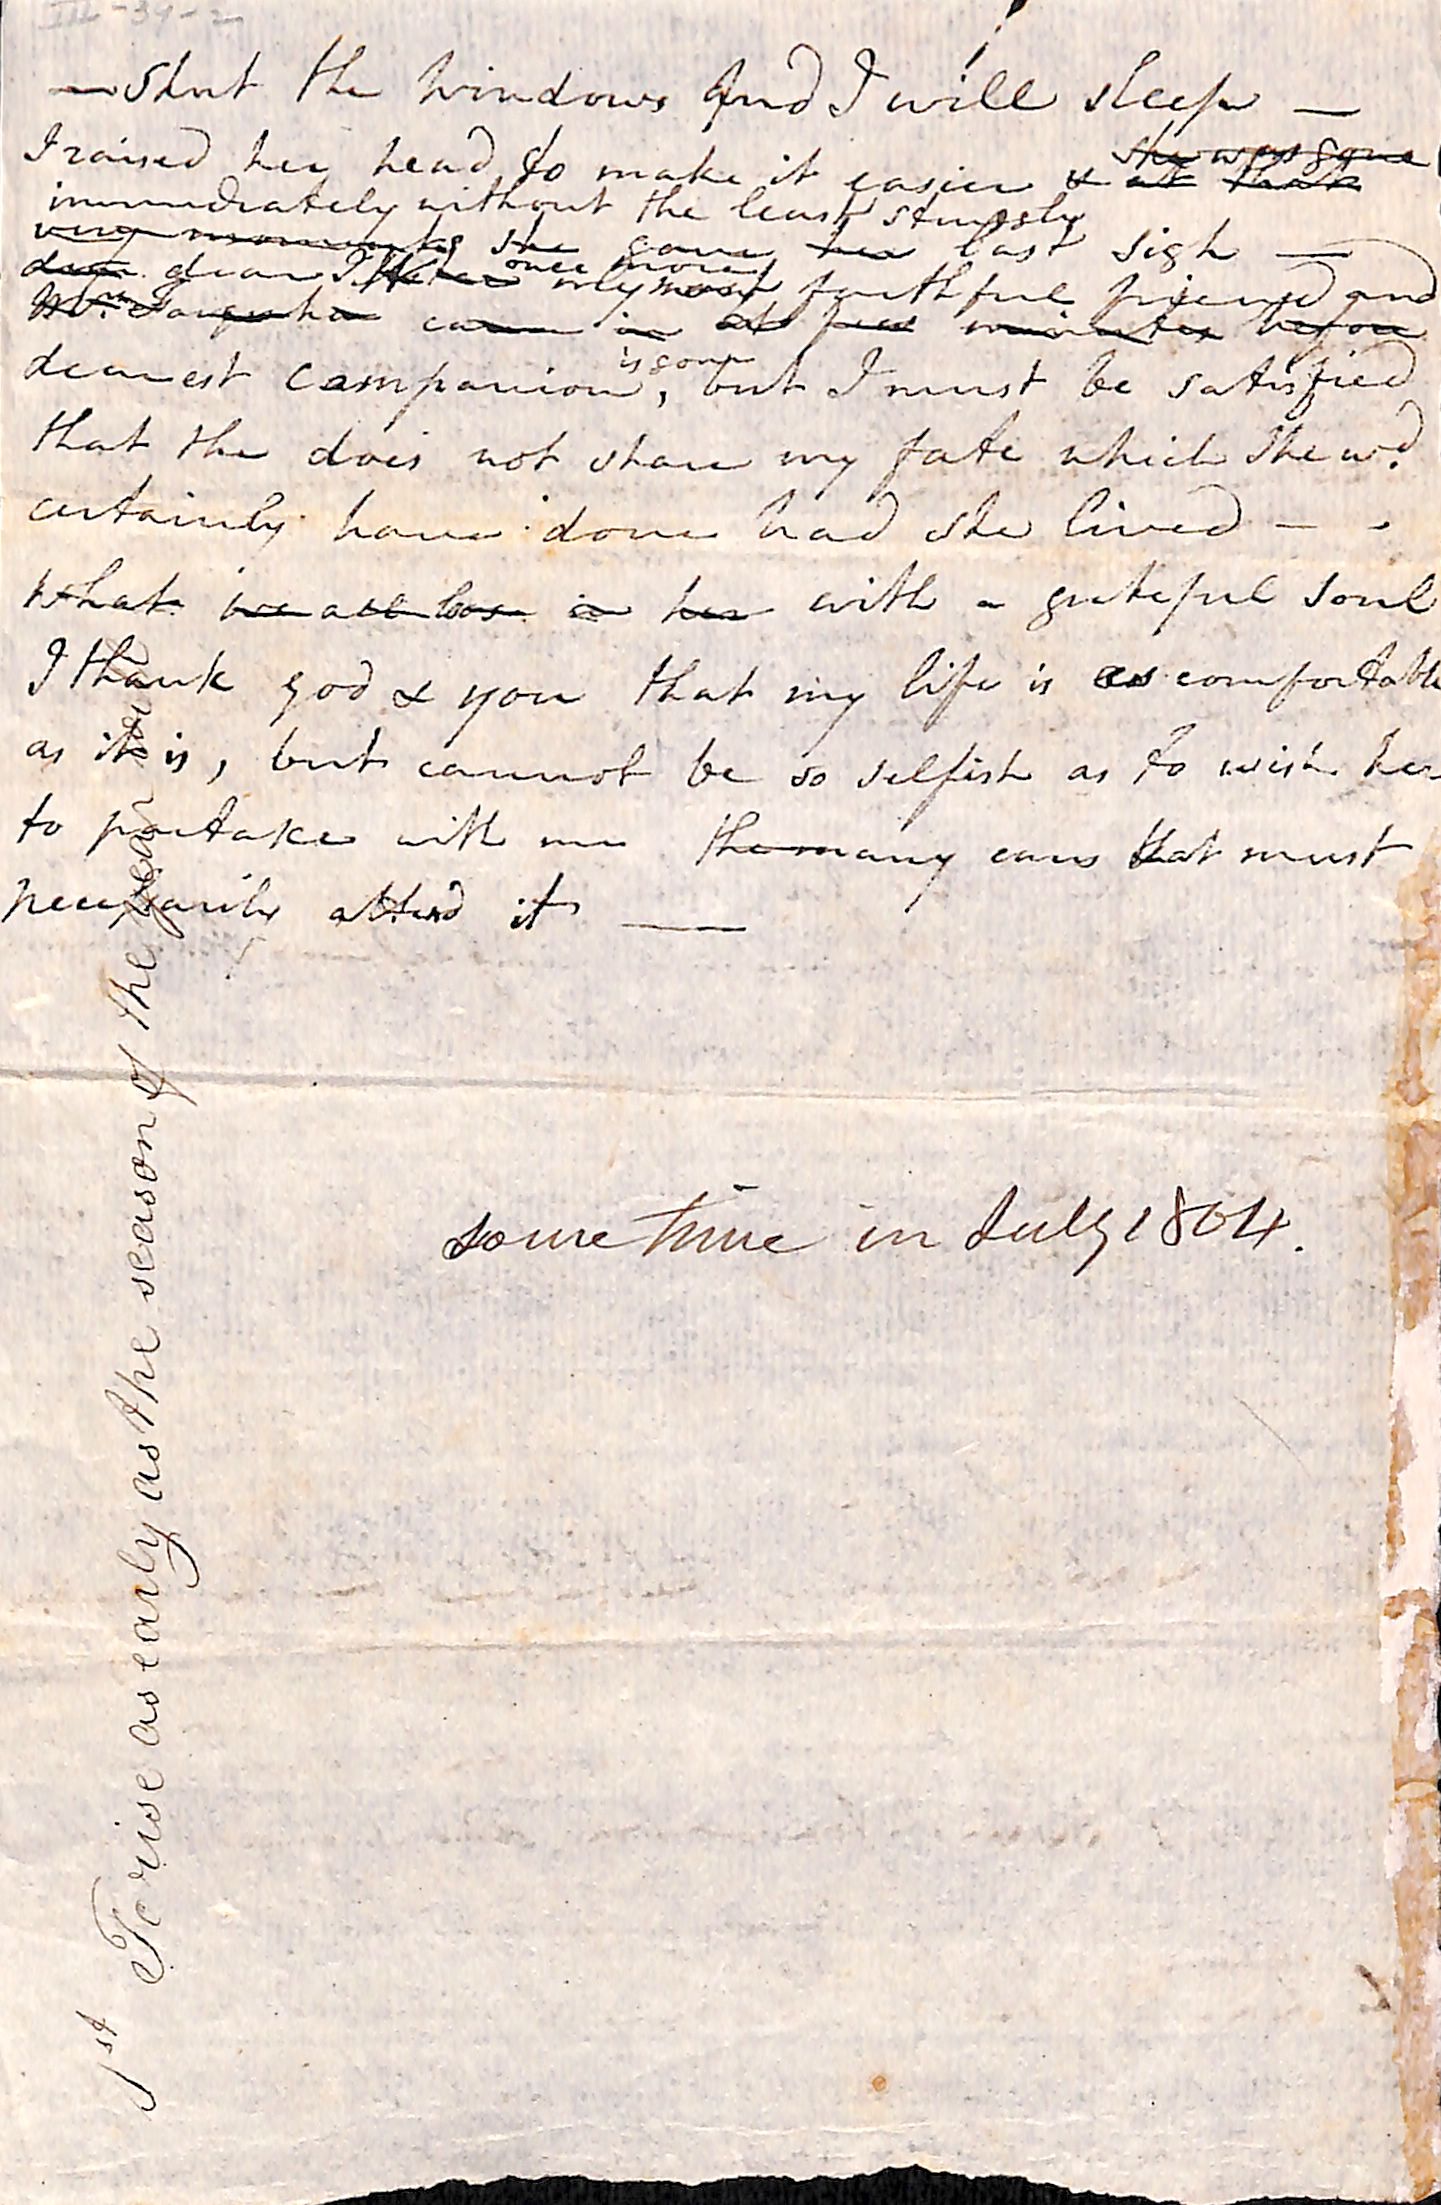 III-34-2
— Shut the windows and I will sleep —
I raised her head to make it easier & at that
she was gone
immediately without the least struggle
very moment she gave her last sigh —
dear
once more
my most faithful friend and
came in a few minutes before
dearest companion, but I must be satisfied
is gone
that she does not share my fate which she wd.
certainly have done had she lived — -
What we all loss in her with a grateful soul
I thank god & you that my life is as comfortable
as it is, but cannot be so selfish as to wish her
to partake with me the many cares that must
necessarily attend it —
some time in July 1804.
1st To rise as early as the season of the year